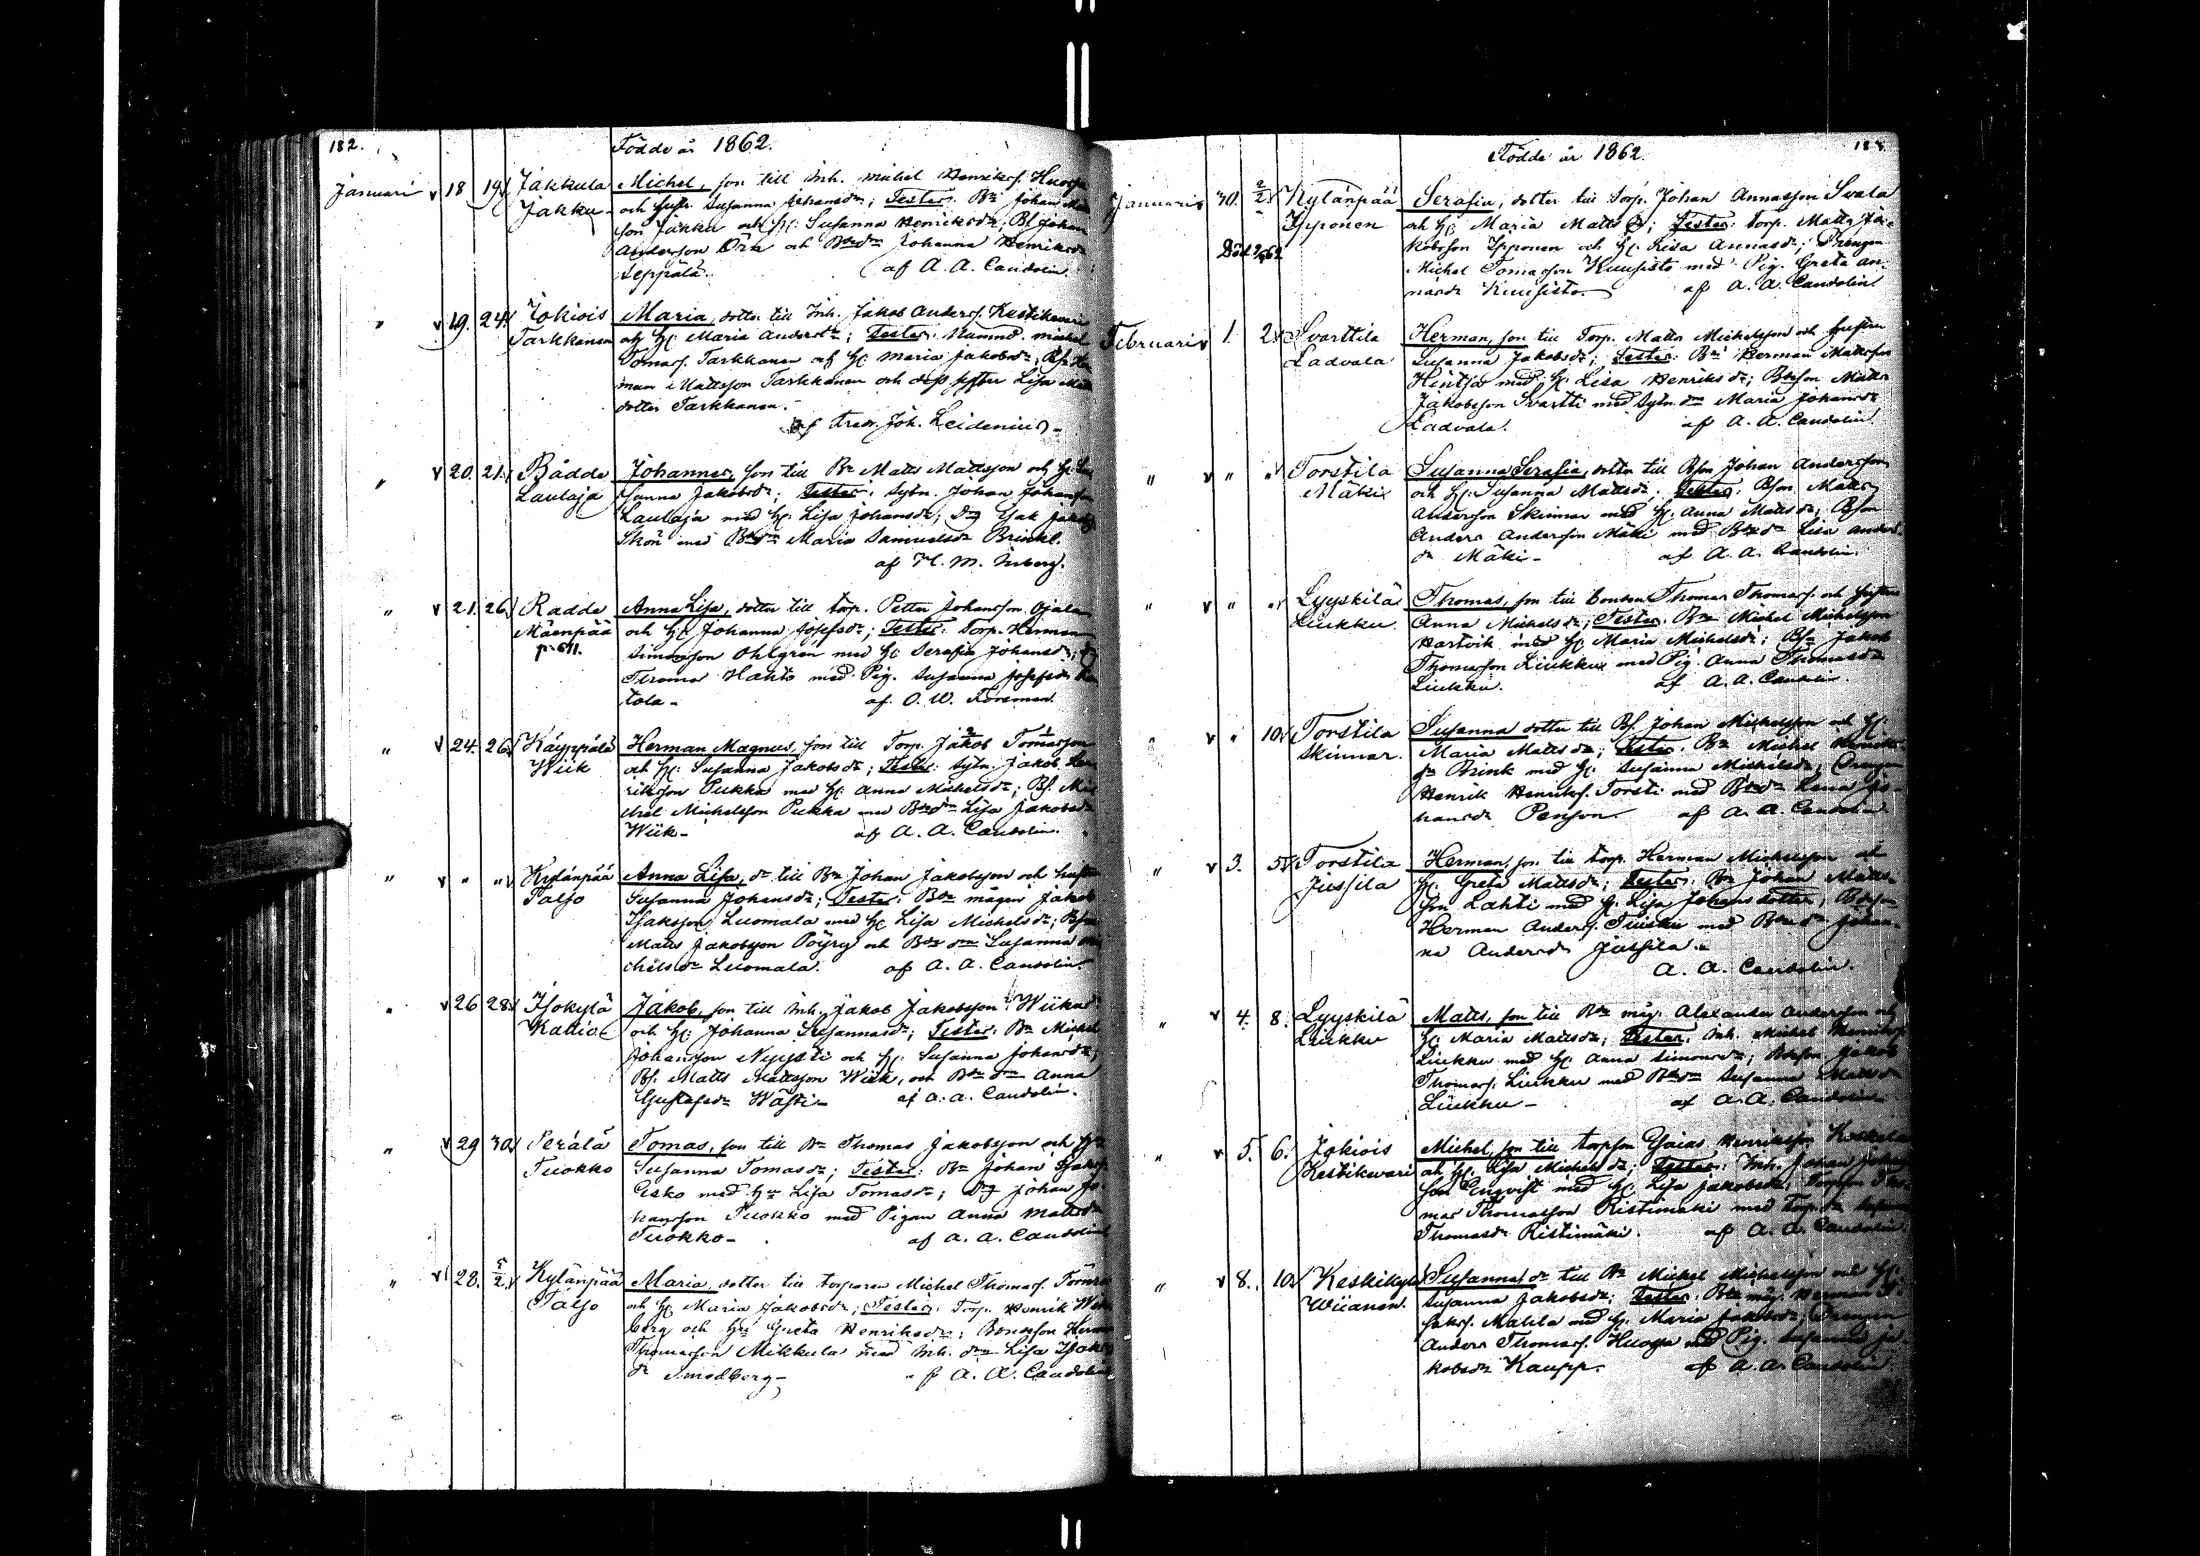 182.
Födde år 1862.
Januari v 18 19 Jakkula Michel, son till Inh. Michel Henriksf. Huovja
Jakku och Hustr. Susanna Johansdr; Testes: Bn Johan
son Jakku och Hu: Susanna Henriksdr; Bf Johan
Andersson Örn och Bdr Johanna Henriksdr
Seppälä. af A. A. Candolin.
" v 19. 24. Jokiois Maria, dotter till Inh. Jakob Andersf. Kestikievari
Tarkkanen och Hu: Maria Andersdr; Testes: Nämnd. Michel
Tomasf. Tarkkanen och Hu: Maria Jakobsdr;
man Mattsson Tarkkanen och dess syster Lisa
dotter Tarkkanen.
af Fredr. Joh. Leidenius
" v 20. 21. Bådde Johannes, son till Bn Matts Mattsson och Hu:
Laulaja sanna Jakobsdr; Testes: Sytn. Johan Johansson
Laulaja med Hu: Lisa Johansdr; Dg Isak
Skön med Bdr Maria Samuelsdr Brinkl.
af H. M. Inberg.
" v 21. 26. Radde Anna Lisa, dotter till torp. Petter Johansson Ojala
Mäenpää och Hu: Johanna Josefsdr; Testes: Torp. Herman
p. 611. Simonsson Ohlgren med Hu: Serafia Johansdr;
Thomas Hahto med Pig. Susanna Josefsdr
tola - af O. W. Forsman.
" v 24. 26. Käyppälä Herman Magnus, son till Torp. Jakob Tomasson
Wiik och Hu: Susanna Jakobsdr; Testes: Sytn. Jakob Hen
riksson Pukka med Hu: Anna Michelsdr; Bf. Mi
chel Michelsson Pukka med Bdr Lisa Jakobsdr
Wiik - af A. A. Candolin.
" v " " Kylänpää Anna Lisa, dr till Bn Johan Jakobsson och hustru
Paljo Susanna Johansdr; Testes: Bde mågen Jakob
Isaksson Luomala med Hu: Lisa Michelsdr;
Matts Jakobsson Pöyry och Bdr Susanna Mi
chelsdr Luomala. af A. A. Candolin.
" v 26 28. Isokylä Jakob, son till Inh. Jakob Jakobsson Wiikal
Kallio och Hu: Johanna Susannasdr; Testes: Bn Michel
Johansson Nyysti och Hu: Susanna Johansdr;
Bf. Matts Mattsson Wiik, och Bdr Anna
Gustafsdr Wästi - af A. A. Candolin.
" v 29 30. Perälä Tomas, son till Bn Thomas Jakobsson och Hu
Tuokko Susanna Tomasdr; Testes: Bn Johan Isaksf
Esko med Hu Lisa Tomasdr; Dg Johan Jo
hansson Tuokko med Pigan Anna Mattsdr
Tuokko - af A. A. Candolin
" v 28. 5/2. Kylänpää Maria, dotter till torparen Michel Thomasf. Törnroos
Paljo och Hu: Maria Jakobsdr; Testes: Torp. Henrik
berg och Hu Greta Henriksdr; Bondeson Herman
Thomasson Mikkula med Inh. dr Lisa Isaks
dr Smedberg - af A. A. Candolin
Födde år 1862.
Januari v 30. 2/2. Kylänpää Serafia, dotter till Torp. Johan Annasson Svala
Ypponen och Hu: Maria Mattsdr; Testes: Torp. Matts Ja-
Död kobsson Ypponen och Hu: Lisa Annasdr; Drengen
Michel Tomasson Kuusisto med Pig. Greta An-
nasdr Kuusisto. af A. A. Candolin.
Februari v 1. 2. Svarttila Herman, son till Torp. Matts Michelsson och hustru
Ladvala Susanna Jakobsdr; Testes: Bn Herman Mattsson
Hintsa med Hu: Lisa Henriksdr; Bdeson Matts
Jakobsson Svartti med Sytn. dr Maria Johansdr
Ladvala. af A. A. Candolin.
" v " " Torstila Susanna Serafia, dotter till Bson Johan Andersson
Mäki och Hu: Susanna Mattsdr; Testes: Bson Matts
Andersson Skinnar med Hu: Anna Mattsdr; Bson
Anders Andersson Mäki med Bdr Lisa Anders
dr Mäki - af A. A. Candolin.
" v " " Lyyskilä Thomas, son till bonden Thomas Thomasf. och hustru
Liukku Anna Michelsdr; Testes: Bn Michel Michelsson
Hartvik med Hu: Maria Michelsdr; Bf Jakob
Thomasson Liukku med Pig. Anna Thomasdr
Liukku. af A. A. Candolin.
" v " 10. Torstila Susanna dotter till Bf. Johan Michelsson och Hu:
Skinnar. Maria Mattsdr; Testes: Bn Michel
Brink med Hu: Susanna Michelsdr; Drengen
Henrik Henriksf. Torsti med Bdr Lena Jo-
hansdr Penson. af A. A. Candolin
" v 3. 5. Torstila Herman, son till torp. Herman Michelsson och
Jussila Hu: Greta Mattsdr; Testes: Bn Johan Matts-
son Lahti med Hu: Lisa Johansdotter; Bdeson
Herman Andersf. Tuisku med Bdr Johan-
na Andersdr Jussila.
A. A. Candolin.
" v 4. 8. Lyyskilä Matts, son till Bn måg. Alexander Andersson och
Liukku Hu: Maria Mattsdr; Testes: Inh. Michel Henriksf
Liukku med Hu: Anna Simonsdr; Bdeson Jakob
Thomasf. Liukku med Bdr Susanna Mattsdr
Liukku - af A. A. Candolin
" v 5. 6. Jokiois Michel, son till torpson Esaias Henriksson Koskela
Kestikievari och Hu: Lisa Michelsdr; Testes: Inh. Johan
son Enqvist med Hu: Lisa Jakobsdr; Torpson Tho-
mas Thomasson Ristimäki med Torp. dr
Thomasdr Ristimäki. af A. A. Candolin
" v 8. 10. Keskikylä Susanna, dr till Bn Michel Michelsson och Hu:
Wiianen. Susanna Jakobsdr; Testes: Bde måg. Herman I-
saksf. Matila med Hu: Maria Jakobsdr; Drengen
Anders Thomasf. Huovja med Pig. Susanna Ja-
kobsdr Kaupp. af A. A. Candolin.